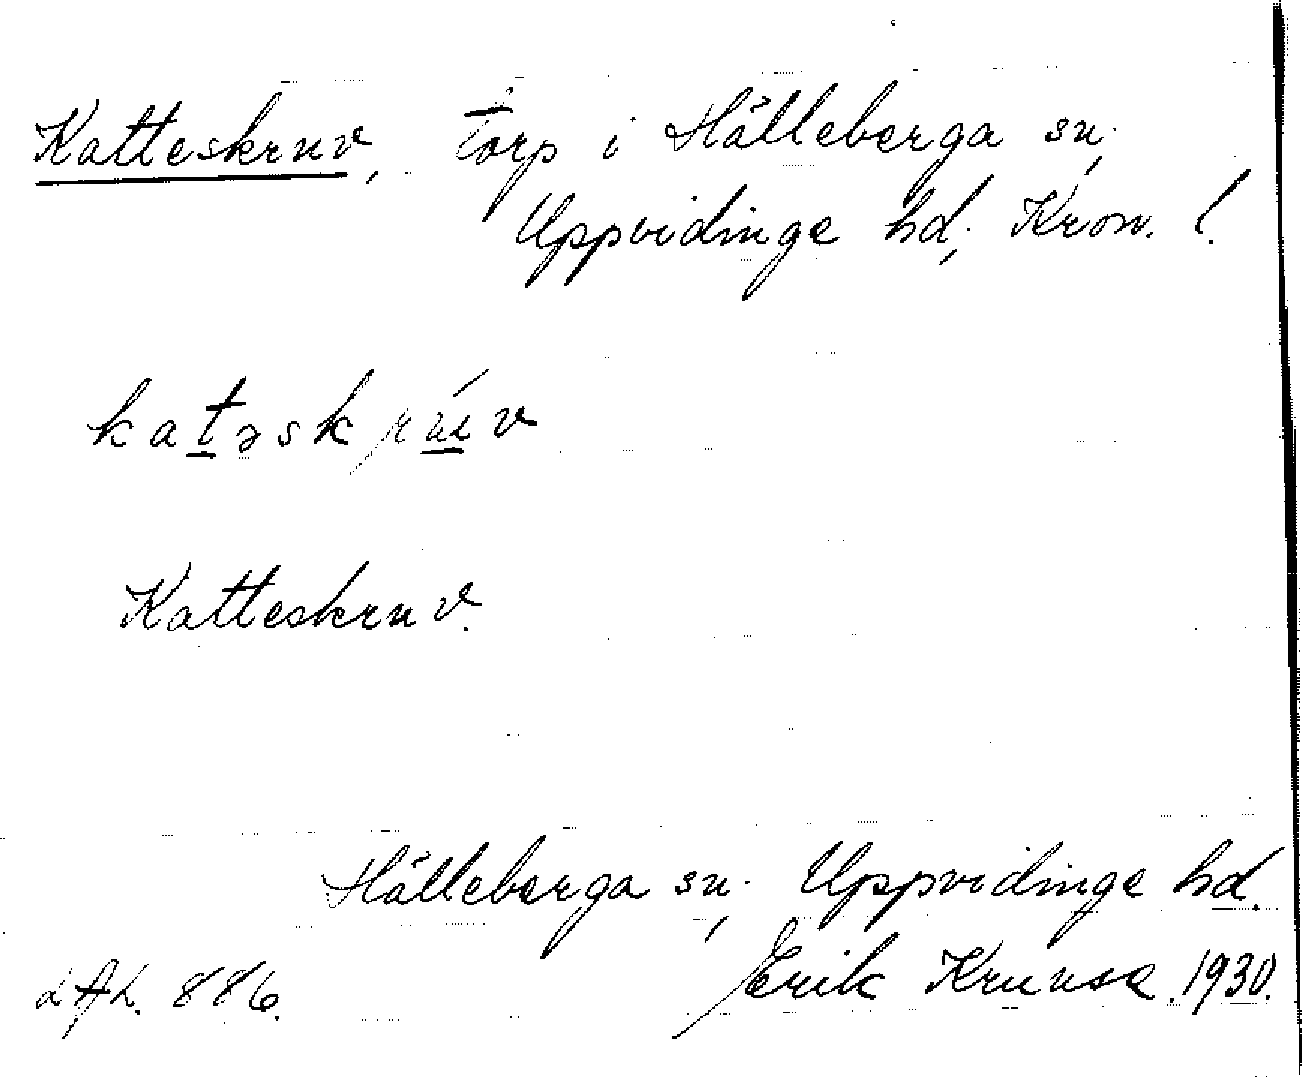 Katteskruv, torp i Hälleberga sn.,
Uppvidinge hd., Kron. l.
Katteskruv.
Hälleberga sn., Uppvidinge hd.
Erik Kruuse 1930.